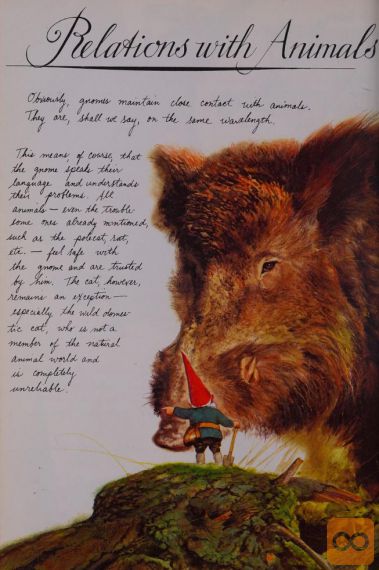 Relations with Animals
Obviously, gnomes maintain close contact with animals.
They are, shall we say, on the same wavelength.
This means, of course, that
the gnome speaks their
language and understands
their problems. All
animals – even the trouble
some ones already mentioned,
such as the polecat, rat,
etc. – feel safe with
the gnome and are trusted
by him. The cat, however,
remains an exception –
especially the wild domes-
tic cat, who is not a
member of the natural
animal world and
is completely
unreliable.